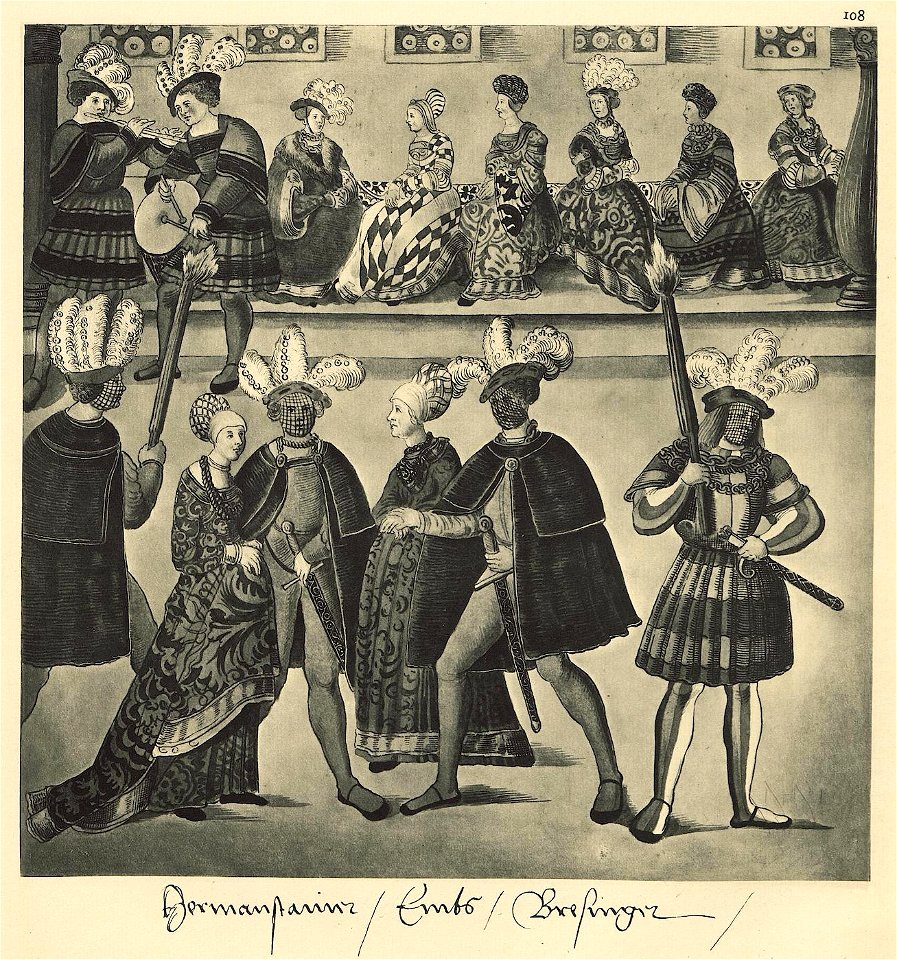 108
Hermanstainer / Embs / Bresinger /